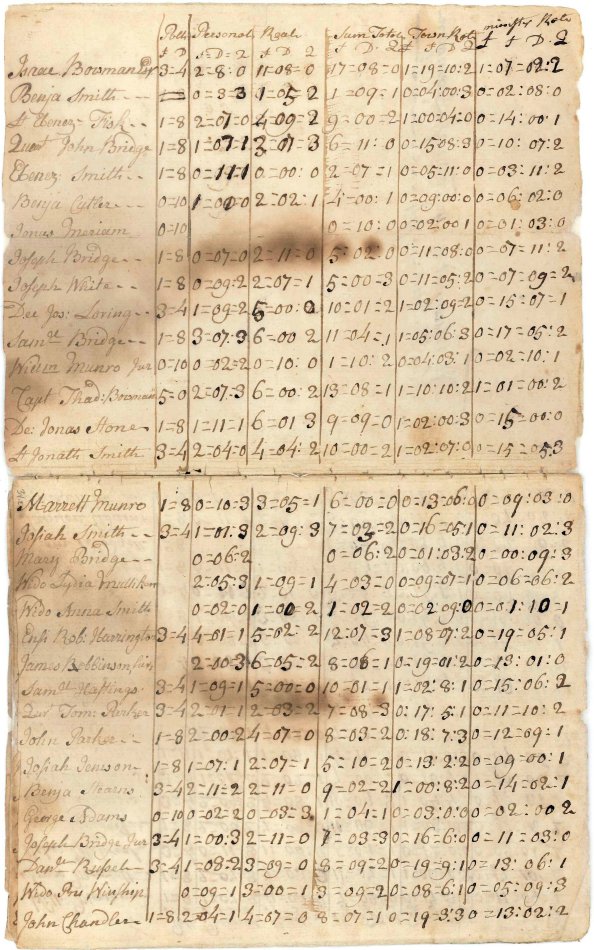 Polls Personal Reale Sum Total Town Rate minestr Rate
£ D £=D=2 £ D 2 £ D 2 £ £ D 2 £ £ D 2
Isaac Bowman Esqr 3=4 2=8=0 11=08=0 17=08=0 1=19=10:2 1=07=02:2
Benja Smith 0=3=3 1=05 2 1=09=1 0=04=00:3 0=02=08:0
Lt Ebenezr Fisk 1=8 2=07=0 4=09=2 9=00=2 1=00=04=0 0=14=00:1
Quat John Bridge 1=8 1=07=1 3=07=3 6=11:0 0=15=08:3 0=10:07:2
Ebenezr Smith 1=8 0=11=1 0=00:0 2=07=1 0=05=11:0 0=03=11:2
Benja Cutler 0=10 1=00=0 2=02:1 4=00:1 0=09:00:0 0=06=02:0
Jonas Meriam 0=10 0=10:0 0=02=00 1 0=01=03:0
Joseph Bridge 1=8 0=07=0 2=11=0 5=02=0 0=11=08:0 0=07=11:2
Joseph White 1=8 0=09:2 2=07=1 5=00=3 0=11=05:2 0=07=09=2
Dee Jos: Loring 3=4 1=09=2 5=00:0 10=01=2 1=02=09=2 0=15=07=1
Samll Bridge 1=8 3=07:3 6=00 2 11=04=1 1=05=06:3 0=17=05:2
Willm Munro Jur 0=10 0=02=2 0=10:0 1=10:2 0=04=03:1 0=02=10:1
Capt Thad: Bowman 5=0 2=07:3 6=00:2 13=08=1 1=10:10:2 1=01=00:2
De: Jonas Stone 1=8 1=11=1 6=01 3 9=09=0 1=02=00:3 0=15=00:0
Lt Jonath Smith 3=4 2=04=0 4=04:2 10=00=2 1=02=07:0 0=15=05 3
Marrett Munro 1=8 0=10=3 3=05=1 6=00=0 0=13=06:0 0=09:03:0
Josiah Smith 3=4 1=01:3 2=09:3 7=02=2 0=16=05:1 0=11:02:3
Mary Bridge 0=06:2 0=06:2 0=01=03:2 0=00:09:3
Wido Lydia Mulliken 2=05:3 1=09=1 4=03=0 0=09=07=1 0=06=06:2
Wido Anna Smith 0=02=0 1=00=2 1=02=2 0=02=09:0 0=01:10=1
Ens Rob: Harrington 3=4 4=01=1 5=02=2 12:07=3 1=08=07:2 0=19=05:1
James Robbinson 2=00=3 6=05=2 8=06=1 0=19=01:2 0=13:01:0
Samll Hastings 3=4 1=09=1 5=00=0 10=01=1 1=02:8:1 0=15:06:2
Qur Tom: Parker 3=4 2=01=1 2=03=2 7=08=3 0:17:5:1 0=11=10:2
John Parker 1=8 2=00=2 4=07=0 8=03=2 0:18:7:3 0=12=09:1
Josiah Jenison 1=8 1=07:1 2=07=1 5=10=2 0=13:2:2 0=09=00:1
Benja Stearns 3=4 2=11=2 2=11=0 9=02=2 1=00:8:2 0=14=02:1
George Adams 0=10 0=02=2 0=03=3 1=04=1 0=03:0:0 0=02:00 2
Joseph Bridge Jur 3=4 1=00:3 2=11=0 7=03=3 0=16=6:0 0=11=03:0
Danll Russel 3=4 1=08=2 3=09=0 8=09=2 0=19=9:1 0=13:06:1
Wido Winship 0=09=1 3=00=1 3=09=2 0=08=6:1 0=05=09:3
John Chandler 1=8 2=04=1 4=07=0 8=07=1 0=19=3:3 0=13=02:2